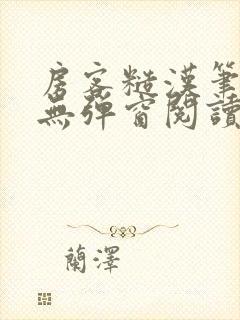 房客糙漢筆
無彈窗閱讀
蘭澤